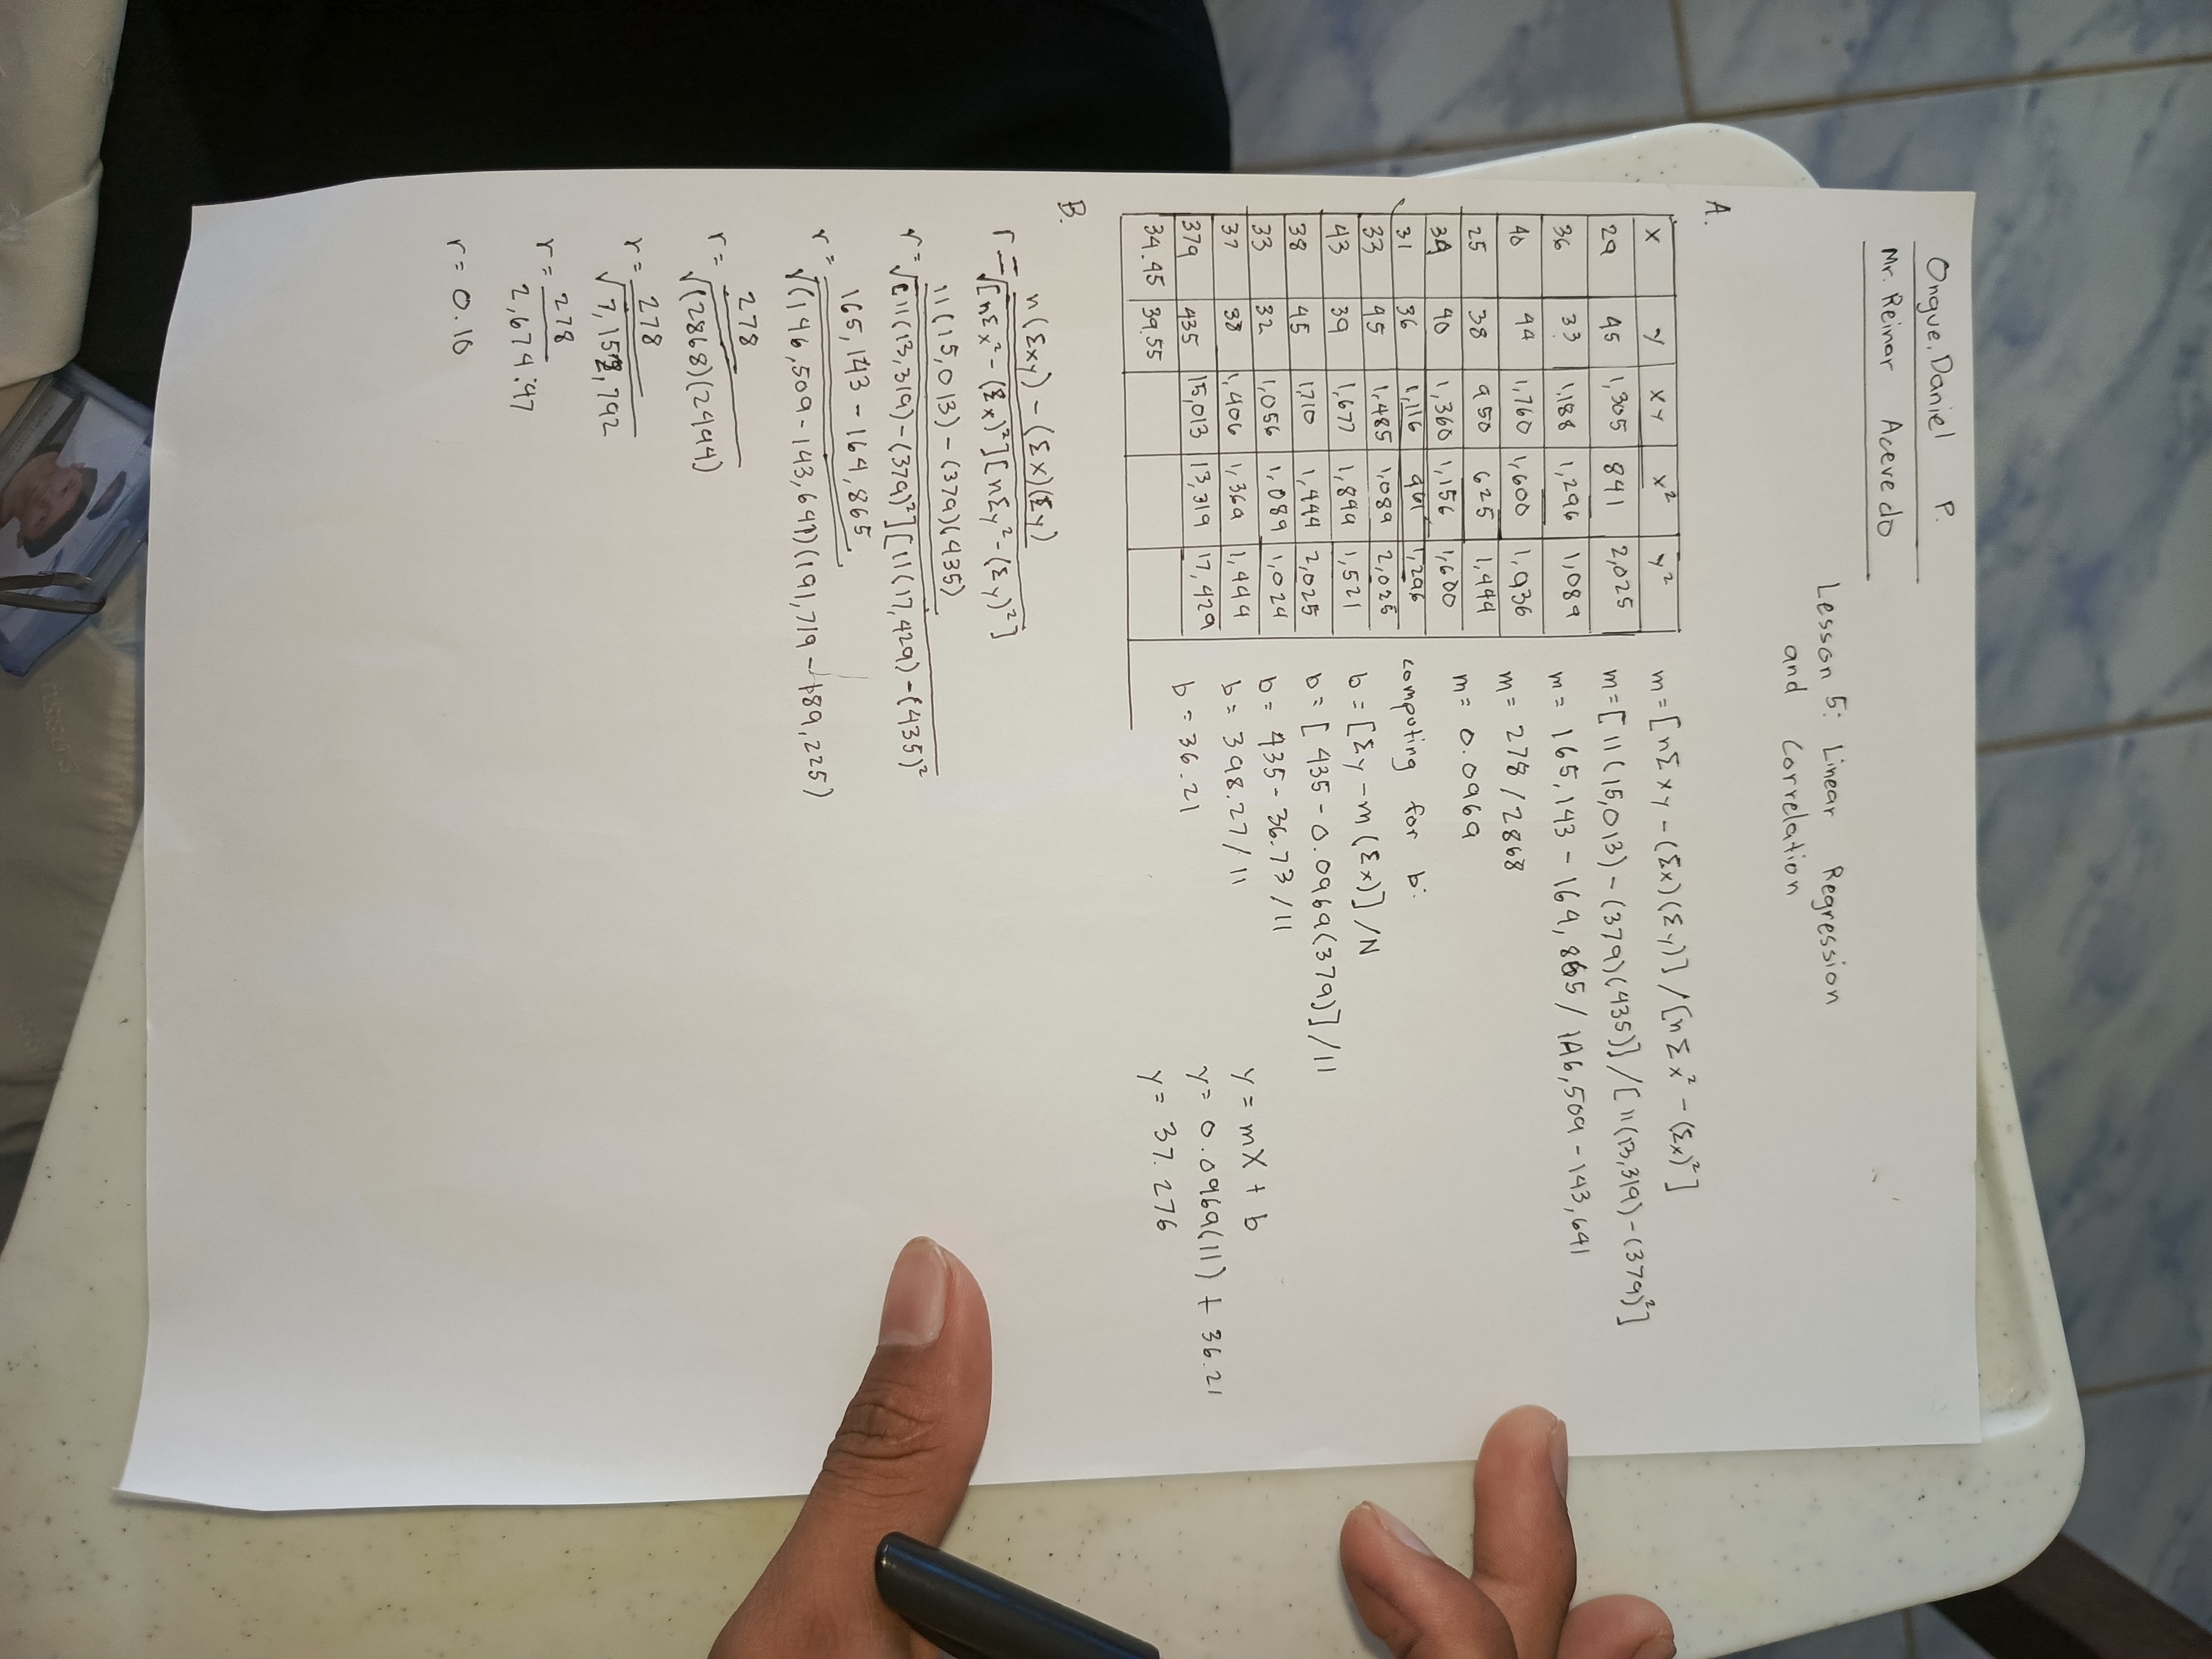 Ongue, Daniel P.
Mr. Reinar Acevedo
Lesson 5: Linear Regression
and Correlation
A.
X Y XY X² Y²
29 45 1,305 841 2,025
36 33 1,188 1,296 1,089
40 44 1,760 1,600 1,936
25 38 950 625 1,444
34 40 1,360 1,156 1,600
31 36 1,116 961 1,296
33 45 1,485 1,089 2,025
43 39 1,677 1,849 1,521
38 45 1,710 1,444 2,025
33 32 1,056 1,089 1,024
37 38 1,406 1,369 1,444
379 435 15,013 13,319 17,429
34.45 39.55
m = [nΣxy - (Σx)(Σy)] / [nΣx² - (Σx)²]
m = [11(15,013) - (379)(435)] / [11(13,319) - (379)²]
m = 165,143 - 164,865 / 146,509 - 143,641
m = 278 / 2868
m = 0.0969
computing for b:
b = [Σy - m(Σx)] / N
b = [435 - 0.0969(379)] / 11
b = 435 - 36.73 / 11
b = 398.27 / 11
b = 36.21
Y = mX + b
Y = 0.0969(11) + 36.21
Y = 37.276
B.
r = n(Σxy) - (Σx)(Σy)
√[nΣx² - (Σx)²][nΣy² - (Σy)²]
11(15,013) - (379)(435)
r = √[11(13,319) - (379)²][11(17,429) - (435)²
165,143 - 164,865
r = √(146,509 - 143,641)(191,719 - 189,225)
278
r = √(2868)(2944)
r = 278
√7,152,792
r = 278
2,674.47
r = 0.10